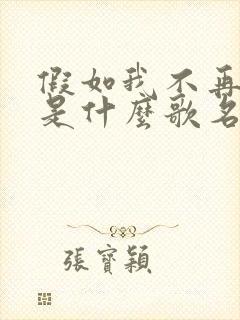 假如我不再
是什麼歌名
張寶穎